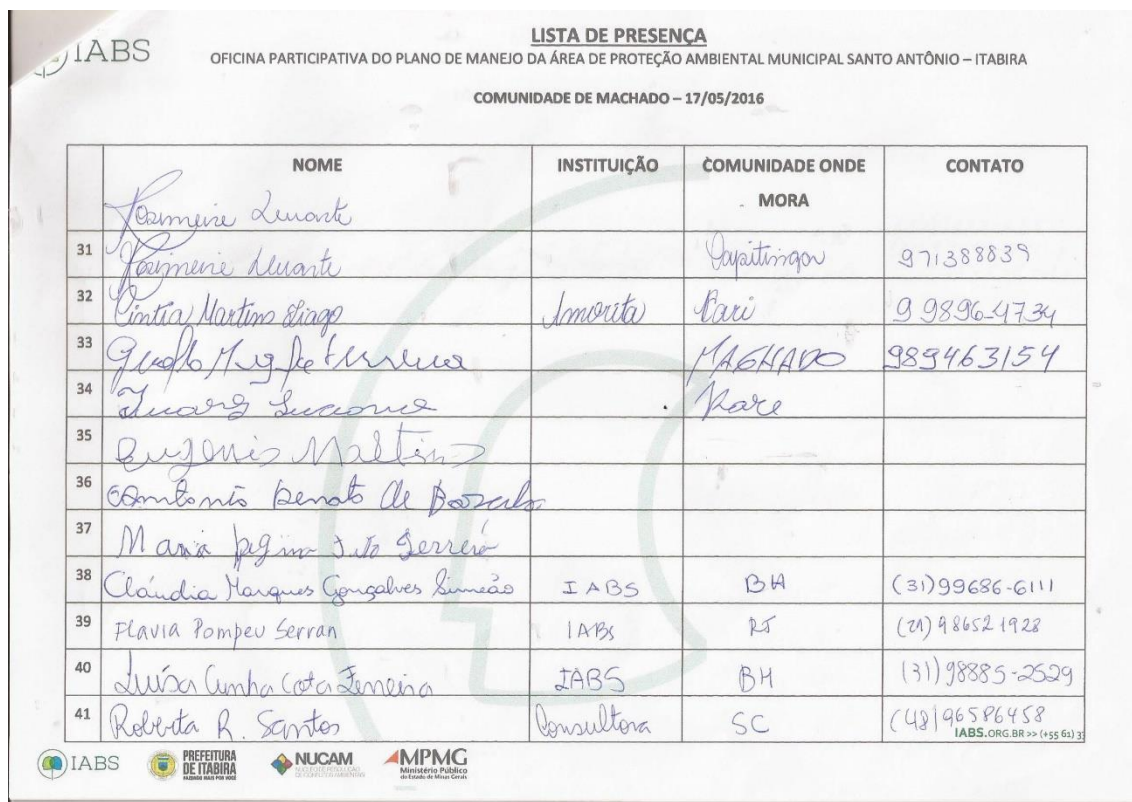 IABS
LISTA DE PRESENÇA
OFICINA PARTICIPATIVA DO PLANO DE MANEJO DA ÁREA DE PROTEÇÃO AMBIENTAL MUNICIPAL SANTO ANTÔNIO – ITABIRA
COMUNIDADE DE MACHADO – 17/05/2016
NOME INSTITUIÇÃO COMUNIDADE ONDE MORA CONTATO
Rosimeire Duarte
31 Rosimeire Duarte Capitinga 971388839
32 Cintia Martins Tiago Amorita 9 9896-4734
33 MACHADO 989463154
34
35 Martins
36 Antonio de
37 Maria Ferreira
38 Cláudia Marques Gonçalves Simeão IABS BH (31)99686-6111
39 Flavia Pompeu Serran IABS RJ (21) 986521928
40 Luísa Cunha Cota Ferreira IABS BH (31)98885-2529
41 Roberta R. Santos Consultora SC (48)96586458
IABS.ORG.BR >> (+55 61) 3
IABS PREFEITURA DE ITABIRA FAZENDO MAIS POR VOCÊ NUCAM MPMG Ministério Público do Estado de Minas Gerais